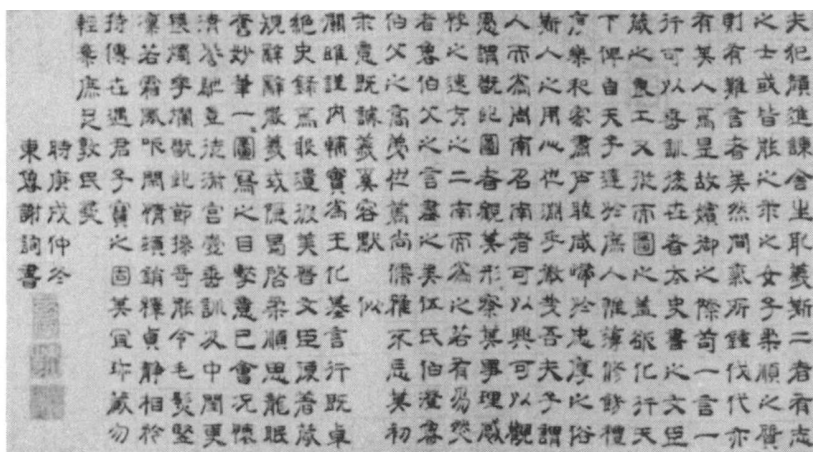 夫犯顏進諫舍生取義斯二者有志
之士或皆能之求之女子柔順之質
則有難言者矣然間氣所鍾代代亦
有其人焉是故嬪御之際苟一言一
行可以垂訓後在者太史書之文臣
箴之良工又從而圖之蓋欲化行天
下俾自天子達於庶人修飾禮
樂和家肅咸歸於忠厚之俗
斯人之用心也淵乎微哉吾夫子謂
人而為周南召南者可以興可以觀
愚謂觀此圖者觀其形察其事理感
悖之速方之二南而為之若有易然
者魯伯父之言盡之矣伍氏伯澄魯
伯父之高弟也篤尚儒雅不忘其初
求意既詠義冀容默 似
關雎謹內輔實為王化基言行既卓
絕史錄焉敢遺彼美晉文臣復著箴
規辭辭嚴義或隱曷啓柔順思龍眠
奮妙筆一圖寫之目擊意已會況懷
清譽馳豈徒漸宮壼垂訓及中閨更
燭爛觀此節操奇能令毛髮竪
凜若霜風吹閑情頓銷釋貞靜相於
持傳在遇君子寶之固其宜珍藏勿
輕棄庶足敦民彝
時庚戌仲冬
東魯謝詢書